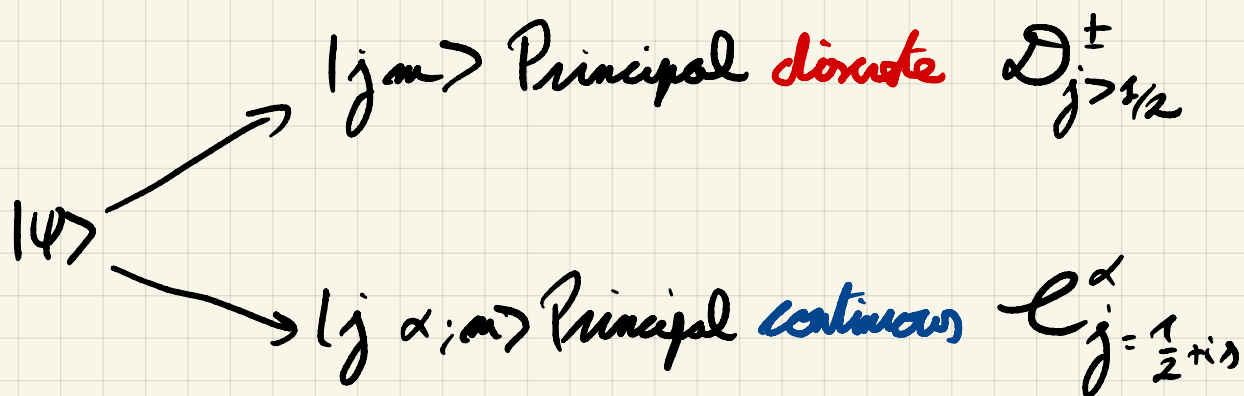 |jm> Principal discrete 𝒟^±_{j>1/2}
|ψ>
|j α;m> Principal continuous 𝒞^α_{j=1/2+is}